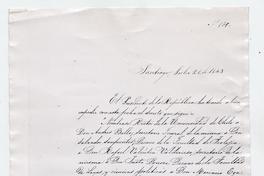 Santiago Julio 26 de 1843
El Presidente de la República ha tenido a bien
expedir con esta fecha el decreto que sigue:
"Nombrase Rector de la Universidad de Chile a
Don Andres Bello, secretario Jeneral de la misma a Don
Salvador Sanfuentes, Decano de la Facultad de Teolojia
a Don Rafael Valentin Valdivieso, secretario de la
misma a Don Justo Donoso, Decano de la Facultad
de Leyes y ciencias politicas a Don Mariano Ega